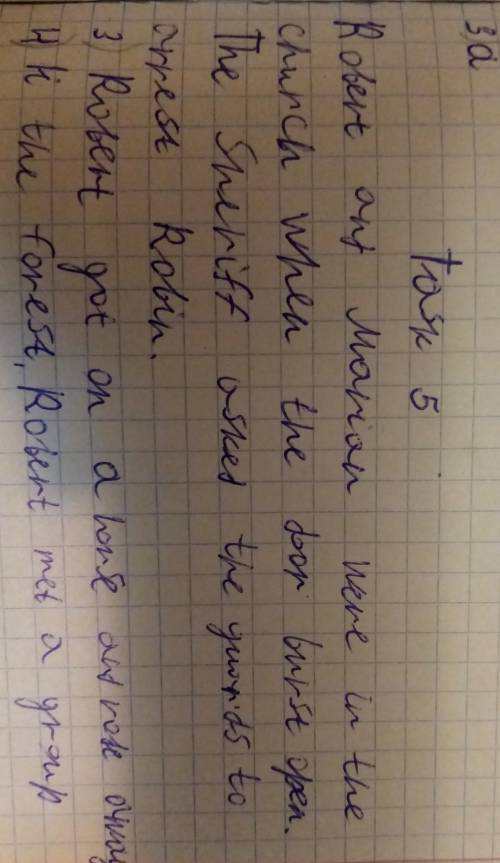 3a
Task 5
Robert and Marian were in the
church when the door burst open.
The Sheriff asked the guards to
arrest Robin.
3) Robert got on a horse and rode away
4) In the forest, Robert met a group